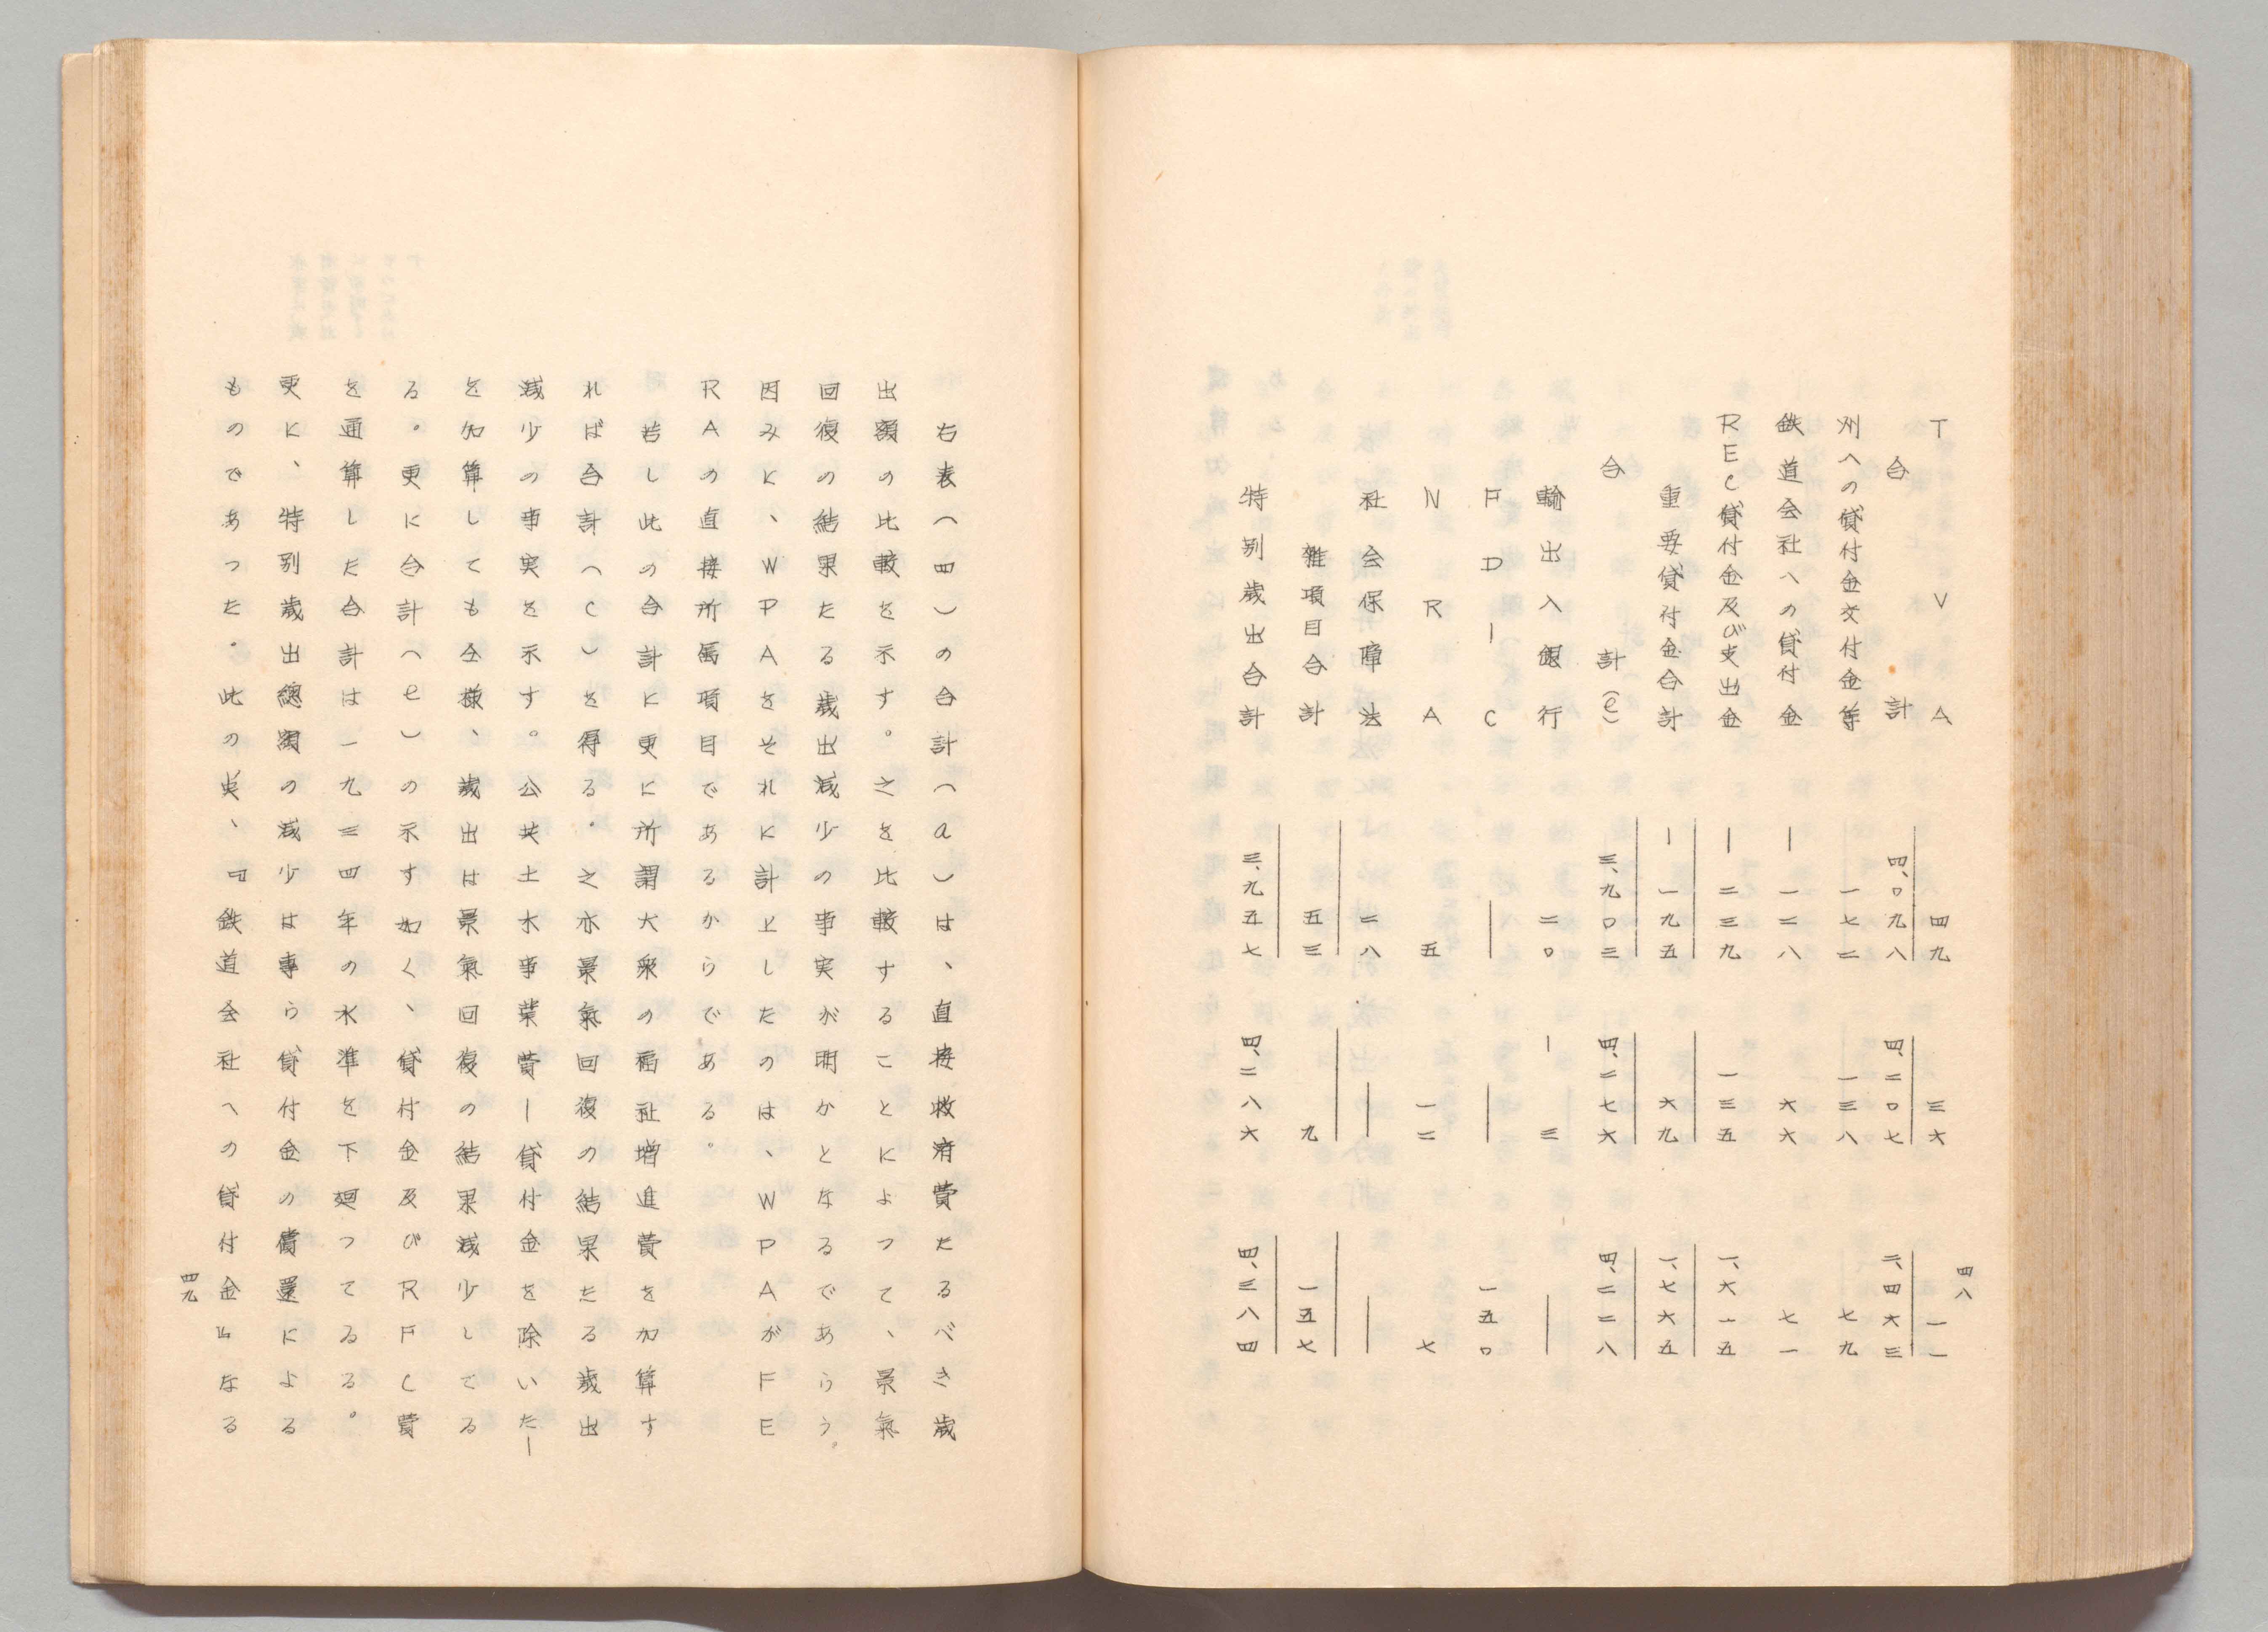 四八
TVA 四九 三六 一一
合計 四、〇九八 四、二〇七 二、四六三
州への貸付金交付金等 一七二 一三八 七九
鉄道会社への貸付金 ー一二八 六六 七一
REC貸付金及び支出金 ー二三九 一三五 一、六一五
重要貸付金合計 ー一九五 六九 一、七六五
合計(e) 三、九〇三 四、二七六 四、二二八
輸出入銀行 二〇 ー三 ー
FDIC ー ー 一五〇
NRA 五 一二 七
社会保障法 二八 ー ー
雑項目合計 五三 九 一五七
特別歳出合計 三、九五七 四、二八六 四、三八四
右表(四)の合計(a)は、直接救済費たるべき歳
出額の比較を示す。之を比較することによつて、景氣
回復の結果たる歳出減少の事実が明かとなるであらう。
因みに、WPAをそれに計上したのは、WPAがFE
RAの直接所属項目であるからである。
若し此の合計に更に所謂大衆の福祉増進費を加算す
れば合計(C)を得る。之亦景氣回復の結果たる歳出
減少の事実を示す。公共土木事業費ー貸付金を除いたー
を加算しても仝様、歳出は景氣回復の結果減少してゐ
る。更に合計(e)の示す如く、貸付金及びRFC費
を通算した合計は一九三四年の水準を下廻つてゐる。
更に、特別歳出總額の減少は專ら貸付金の償還による
ものであつた。此の実、「鉄道会社への貸付金」なる
四九